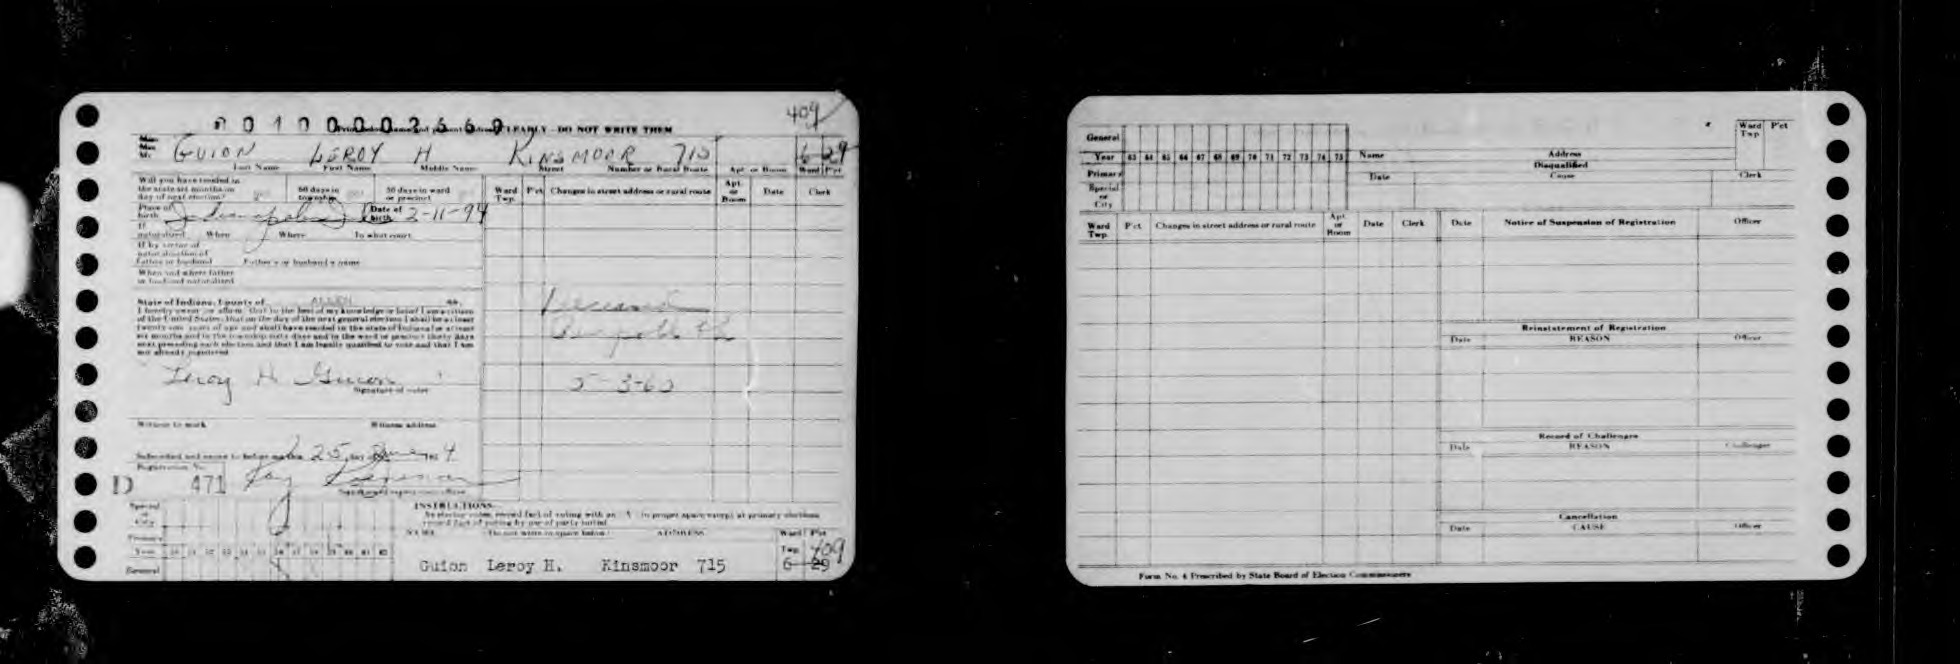 409
CLEARLY - DO NOT WRITE THEM
GUION LEROY H KINSMOOR 715 6 29
Last Name First Name Middle Name Street Number or Rural Route Apt. or Room Ward P'ct
Will you have resided in
the state six months on
day of next election?
60 days in
township
30 days in ward
or precinct
Place of
birth Indianapolis
Date of
birth 2-11-94
If
naturalized When Where To what court
If by virtue of
naturalization of
Father or husband Father's or husband's name
When and where father
or husband naturalized
State of Indiana, County of ALLEN ss.
I hereby swear (or affirm) that to the best of my knowledge or belief I am a citizen
of the United States; that on the day of the next general election I shall be at least
twenty-one years of age and shall have resided in the state of Indiana for at least
six months and in the township sixty days and in the ward or precinct thirty days
next preceding such election and that I am legally qualified to vote and that I am
not already registered
Leroy H. Guion
Signature of voter
Witness to mark Witness address
Subscribed and sworn to before me this 25 day
Registration No.
D 471
Ward
Twp.
P'ct Changes in street address or rural route
Apt.
or
Room
Date Clerk
Deceased
5-3-60
Special
or
City
Primary
Year
General
INSTRUCTIONS
record fact of voting by use of party initial
NAME (Do not write in space below) ADDRESS Ward P'ct
Twp. 409
Guion Leroy H. Kinsmoor 715 6 29
General
Year 63 64 65 66 67 68 69 70 71 72 73 74 75
Primary
Special
or
City
Name Address
Ward
Twp.
P'ct
Disqualified
Date Cause Clerk
Ward
Twp.
P'ct Changes in street address or rural route
Apt.
or
Room
Date Clerk
Date Notice of Suspension of Registration Officer
Reinstatement of Registration
Date REASON Officer
Record of Challenges
Date REASON Challenger
Cancellation
Date CAUSE Officer
Form No. 4 Prescribed by State Board of Election Commissioners